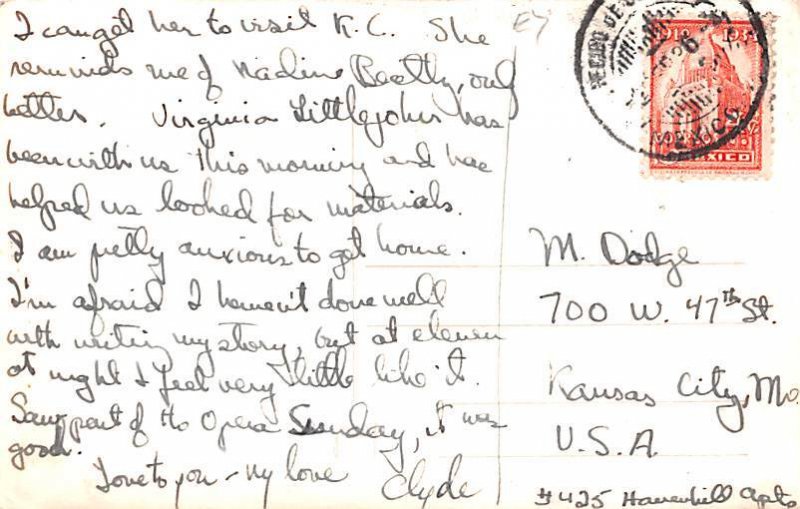 I can get her to visit K.C. She
reminds me of Nadine Beatty, only
better. Virginia Littlejohn has
been with us this morning and has
helped us looked for materials.
I am pretty anxious to get home.
I'm afraid I haven't done well
with writing my story, but at eleven
at night I feel very little like it.
Saw part of the Opera Sunday, it was
good.
Love to you - my love
Clyde
EY
1910 193
MEXICO
MEXICO
M. Dodge
700 W. 47th St.
Kansas City, Mo.
U.S.A.
#425 Haverhill Apts